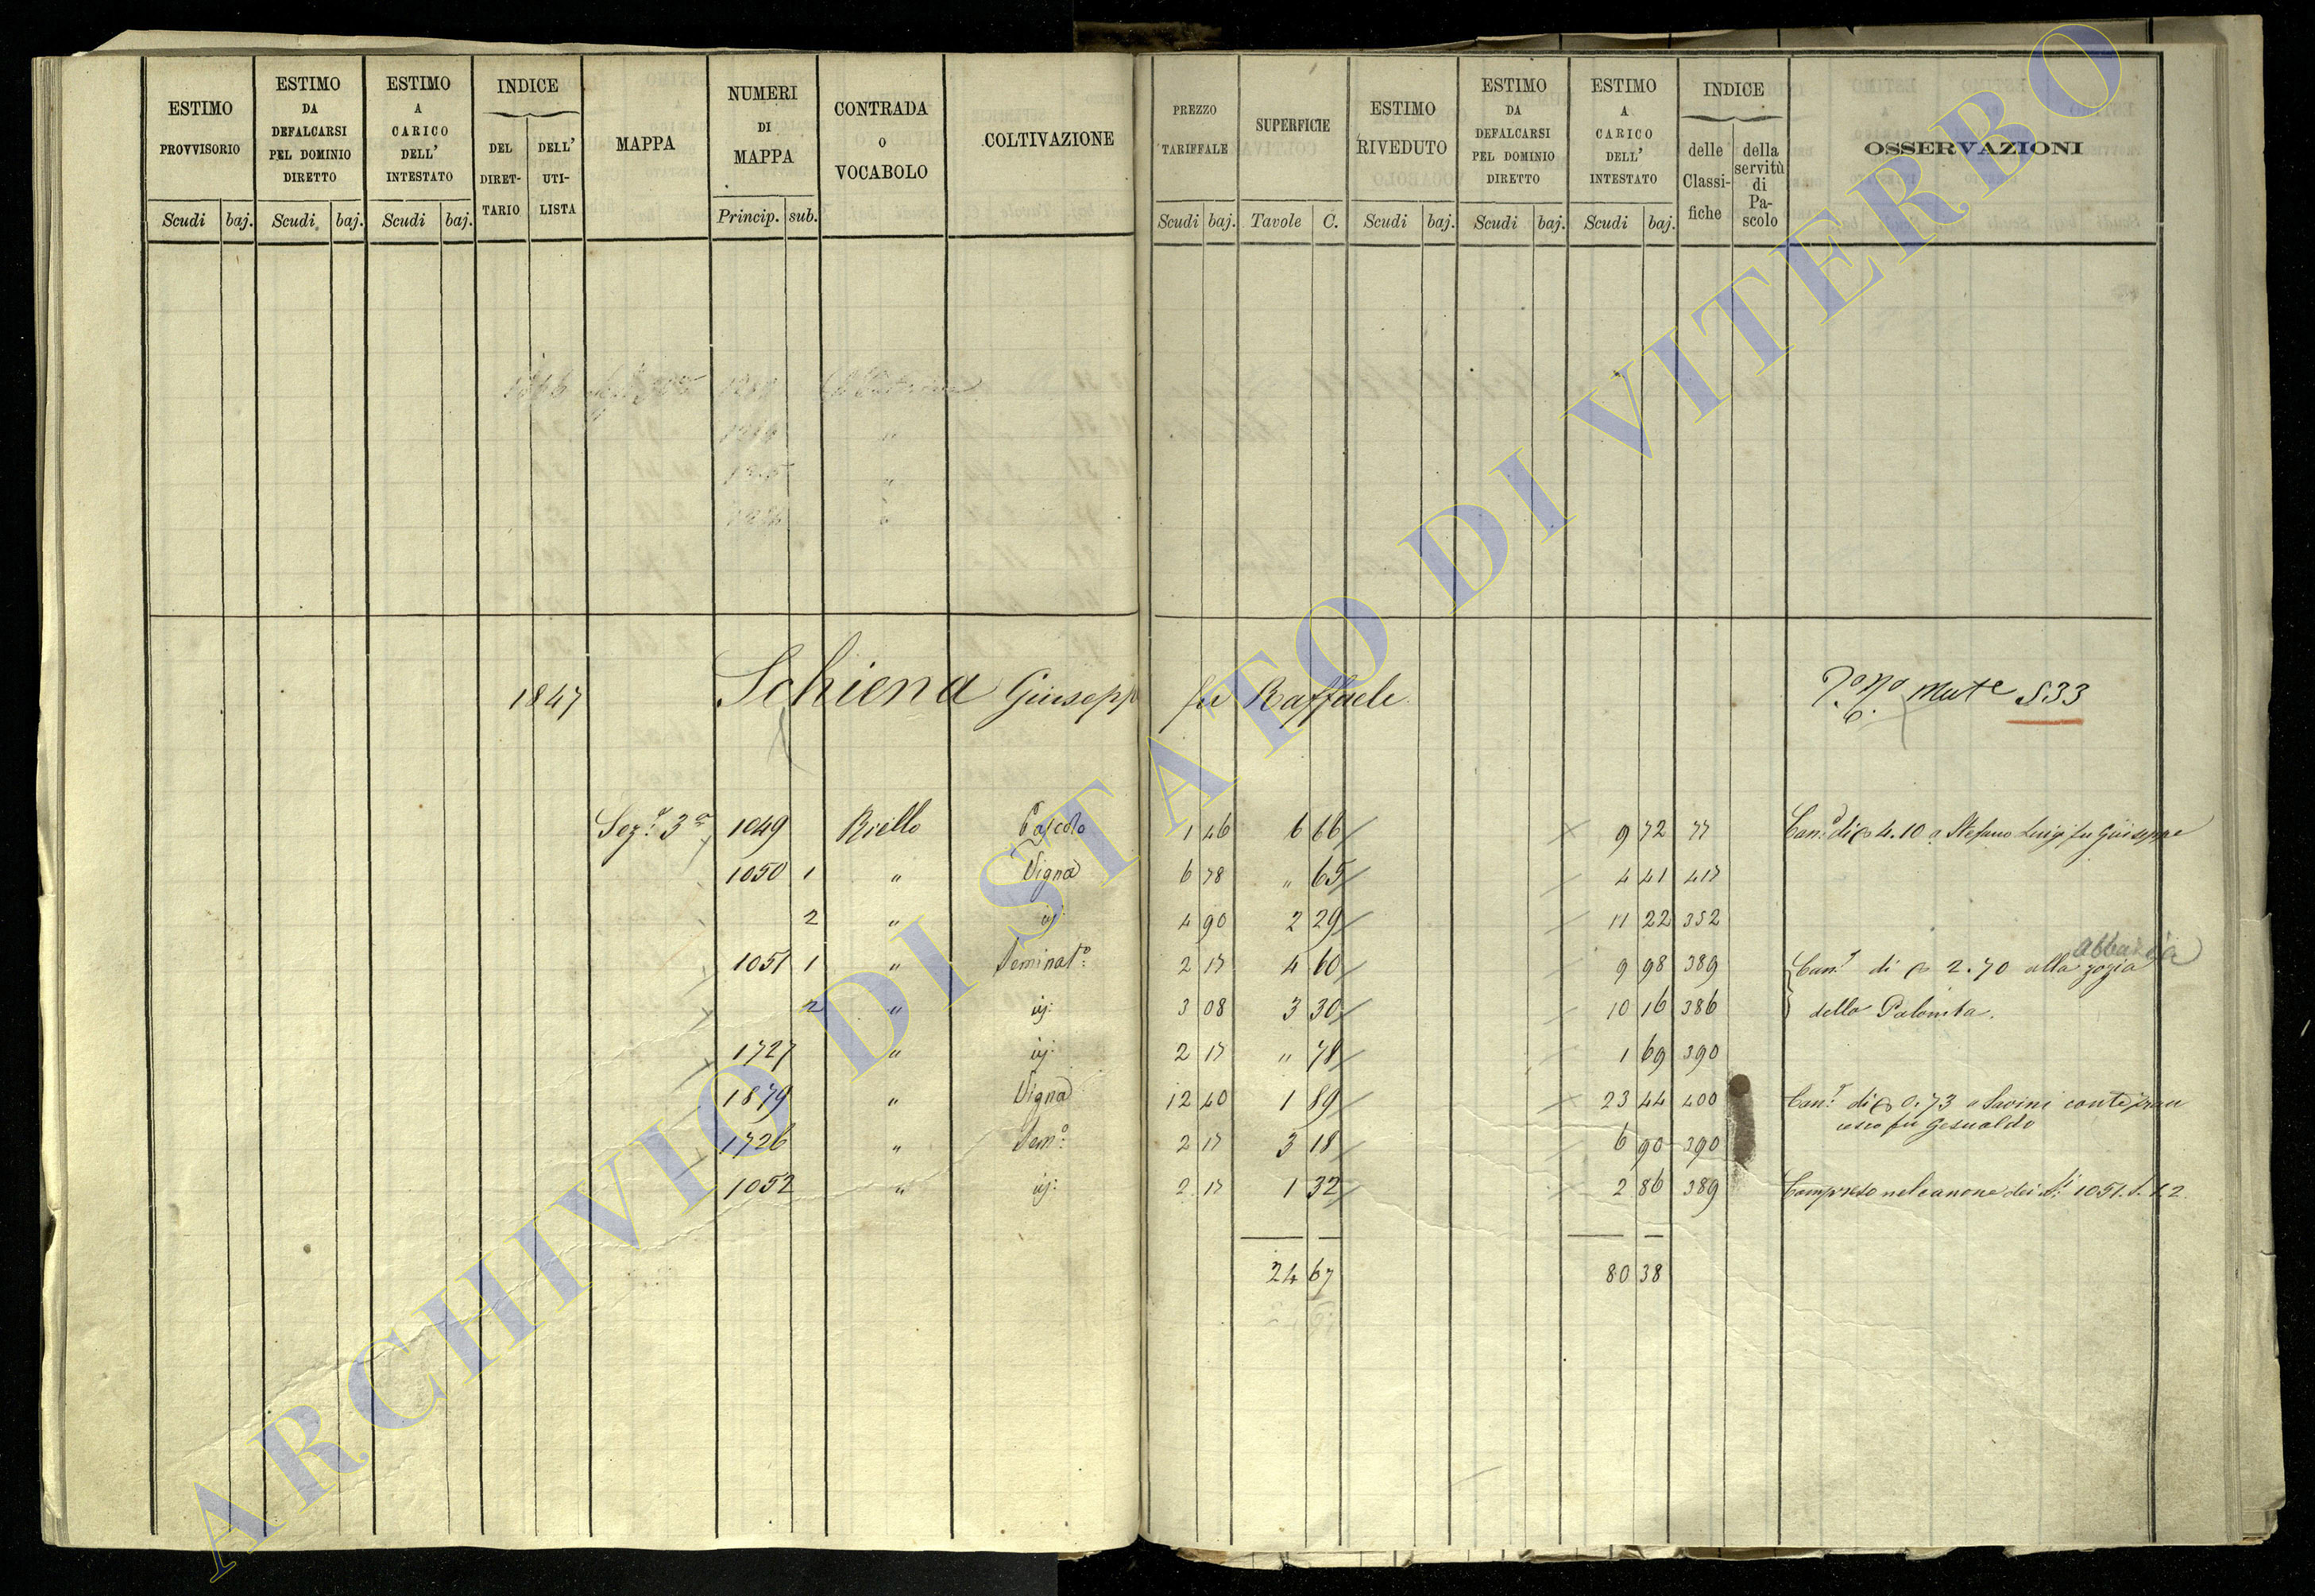 ESTIMO PROVVISORIO Scudi baj.
ESTIMO DA DEFALCARSI PEL DOMINIO DIRETTO Scudi baj.
ESTIMO A CARICO DELL' INTESTATO Scudi baj.
INDICE DEL DIRET- TARIO DELL' UTI- LISTA
MAPPA
NUMERI DI MAPPA Princip. sub.
CONTRADA O VOCABOLO
COLTIVAZIONE
PREZZO TARIFFALE Scudi baj.
SUPERFICIE Tavole C.
ESTIMO RIVEDUTO Scudi baj.
ESTIMO DA DEFALCARSI PEL DOMINIO DIRETTO Scudi baj.
ESTIMO A CARICO DELL' INTESTATO Scudi baj.
INDICE delle Classi- fiche della servitù di Pa- scolo
OSSERVAZIONI
1847 Schiena Giuseppe fu Raffaele Mute 533
Sez.e 3a 1049 Riello Pascolo 1 46 6 66 9 72 77 Can.e di 4.10 a Stefano Luigi fu Giuseppe
1050 1 " Vigna 6 78 " 65 4 41 417
2 " id: 4 90 2 29 11 22 352
1051 1 " Seminat.o 2 17 4 60 9 98 389 Can.e di 2.70 alla abbazia
2 " id: 3 08 3 30 10 16 386 della
1727 " id: 2 17 " 78 1 69 390
1879 " Vigna 12 40 1 89 23 44 400 Can.e di 0.73 a Savini conte Fran
cesco fu Gesualdo
1726 " Sem.o 2 17 3 18 6 90 390
1052 " id: 2 17 1 32 2 86 389 Compreso nel canone dei N.i 1051. s. 1.2
24 67 80 38
ARCHIVIO DI STATO DI VITERBO